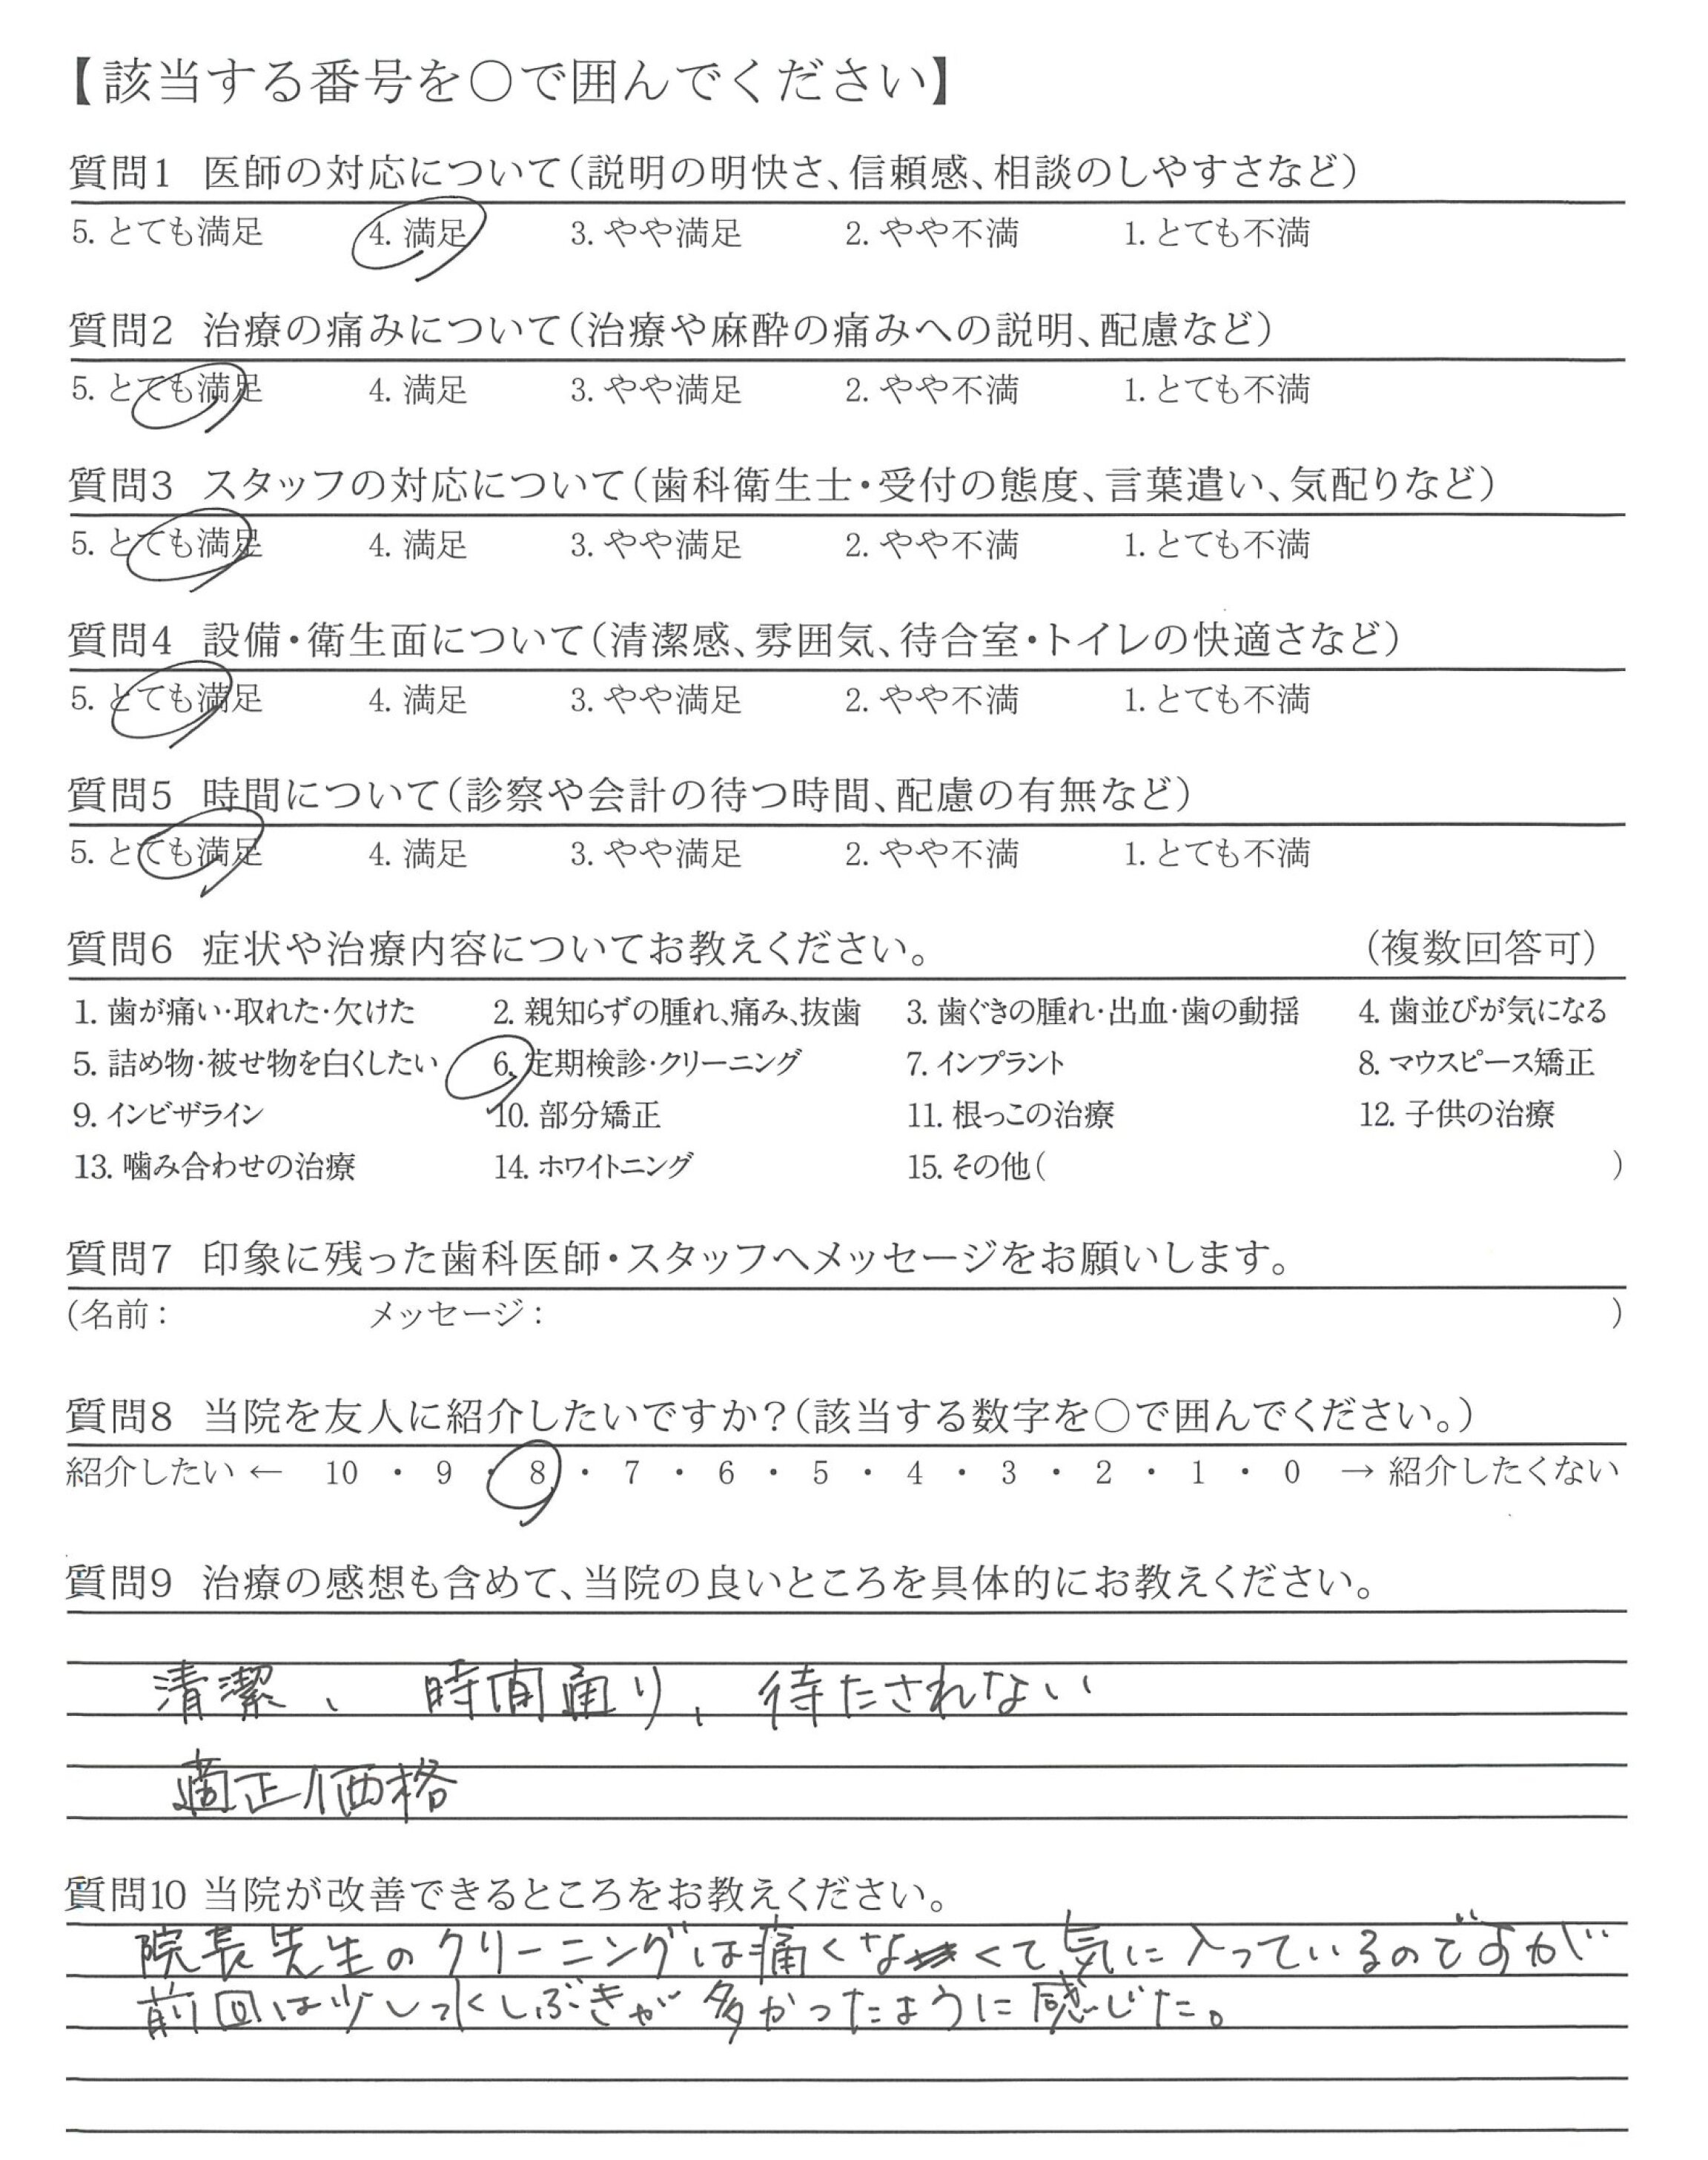 【該当する番号を〇で囲んでください】
質問1 医師の対応について(説明の明快さ、信頼感、相談のしやすさなど)
5. とても満足 4. 満足 3. やや満足 2. やや不満 1. とても不満
質問2 治療の痛みについて(治療や麻酔の痛みへの説明、配慮など)
5. とても満足 4. 満足 3. やや満足 2. やや不満 1. とても不満
質問3 スタッフの対応について(歯科衛生士・受付の態度、言葉遣い、気配りなど)
5. とても満足 4. 満足 3. やや満足 2. やや不満 1. とても不満
質問4 設備・衛生面について(清潔感、雰囲気、待合室・トイレの快適さなど)
5. とても満足 4. 満足 3. やや満足 2. やや不満 1. とても不満
質問5 時間について(診察や会計の待つ時間、配慮の有無など)
5. とても満足 4. 満足 3. やや満足 2. やや不満 1. とても不満
質問6 症状や治療内容についてお教えください。 (複数回答可)
1. 歯が痛い・取れた・欠けた 2. 親知らずの腫れ、痛み、抜歯 3. 歯ぐきの腫れ・出血・歯の動揺 4. 歯並びが気になる
5. 詰め物・被せ物を白くしたい 6. 定期検診・クリーニング 7. インプラント 8. マウスピース矯正
9. インビザライン 10. 部分矯正 11. 根っこの治療 12. 子供の治療
13. 噛み合わせの治療 14. ホワイトニング 15. その他( )
質問7 印象に残った歯科医師・スタッフへメッセージをお願いします。
(名前: メッセージ: )
質問8 当院を友人に紹介したいですか?(該当する数字を〇で囲んでください。)
紹介したい ← 10 ・ 9 ・ 8 ・ 7 ・ 6 ・ 5 ・ 4 ・ 3 ・ 2 ・ 1 ・ 0 → 紹介したくない
質問9 治療の感想も含めて、当院の良いところを具体的にお教えください。
清潔、時間通り、待たされない
適正価格
質問10 当院が改善できるところをお教えください。
院長先生のクリーニングは痛くなくて気に入っているのですが
前回は少し水しぶきが多かったように感じた。